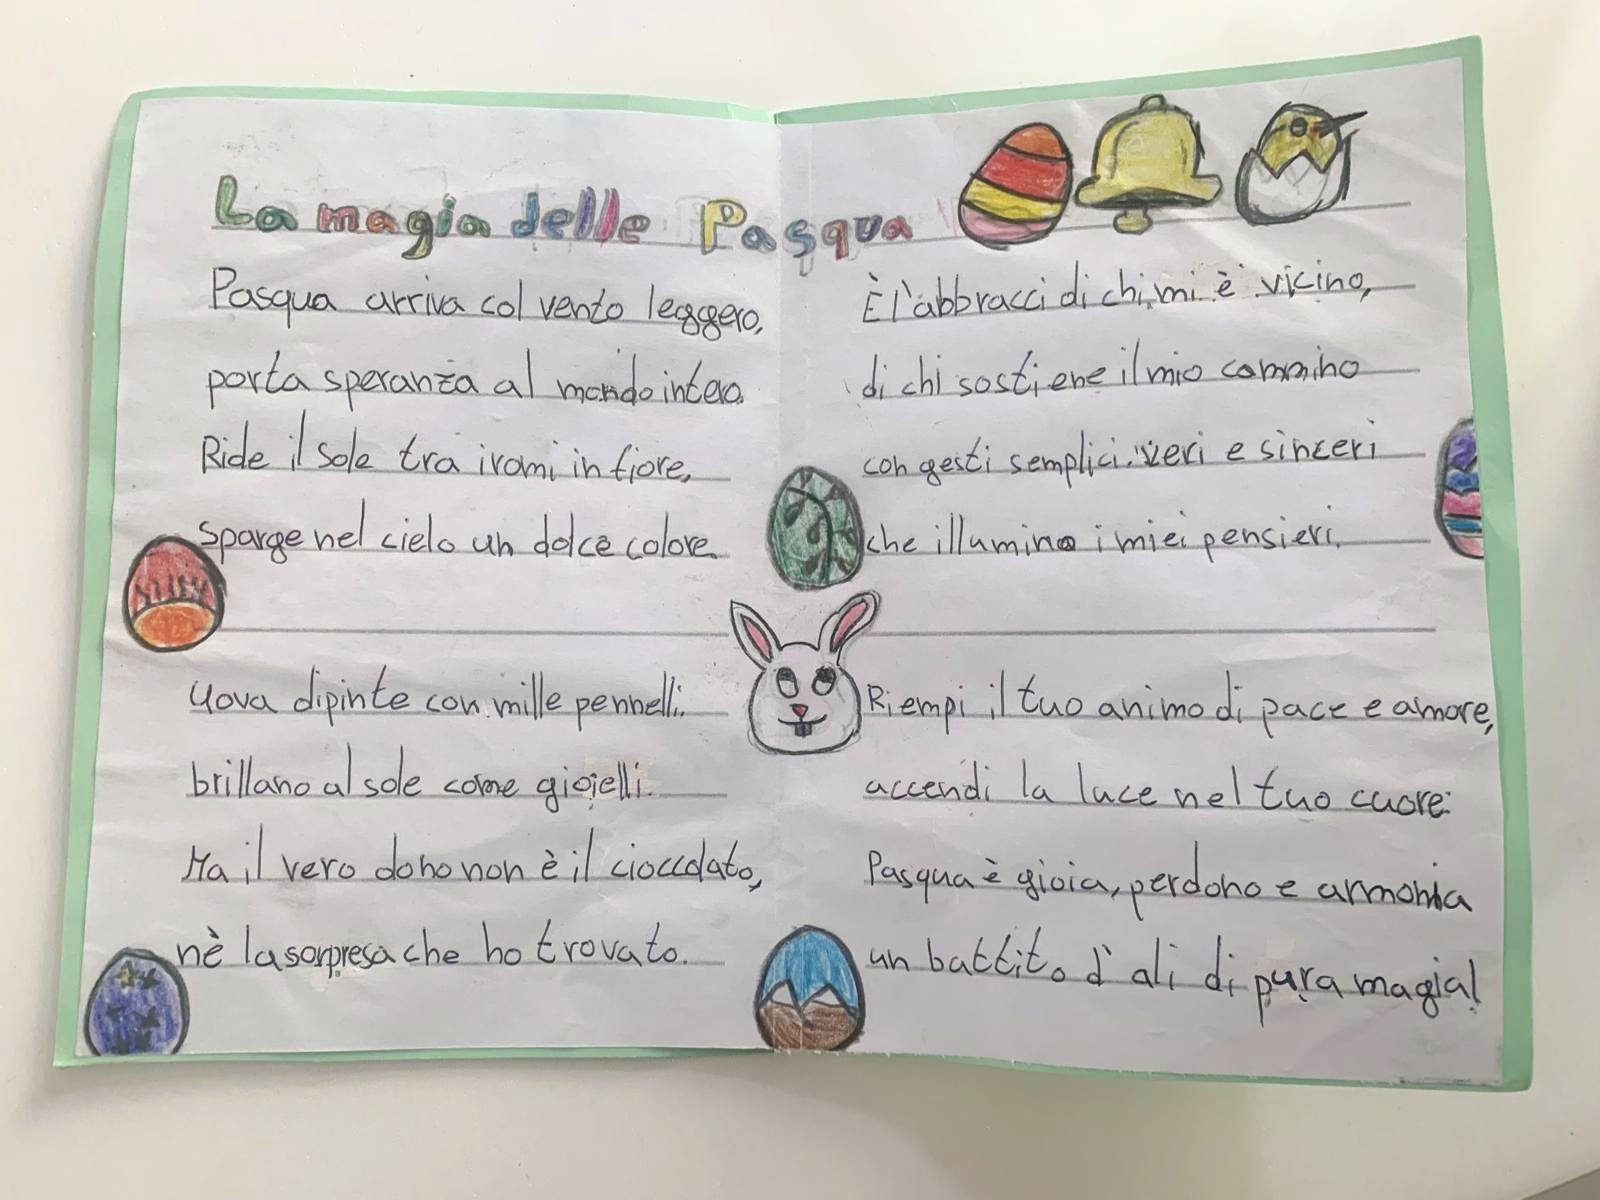 La magia delle Pasqua
Pasqua arriva col vento leggero,
porta speranza al mondo intero.
Ride il sole tra i rami in fiore,
sparge nel cielo un dolce colore.
Uova dipinte con mille pennelli.
brillano al sole come gioielli.
Ma il vero dono non è il cioccolato,
nè la sorpresa che ho trovato.
È l'abbracci di chi mi è vicino,
di chi sostiene il mio cammino
con gesti semplici. veri e sinceri
che illumina i miei pensieri.
Riempi il tuo animo di pace e amore,
accendi la luce nel tuo cuore:
Pasqua è gioia, perdono e armonia
un battito d'ali di pura magia!